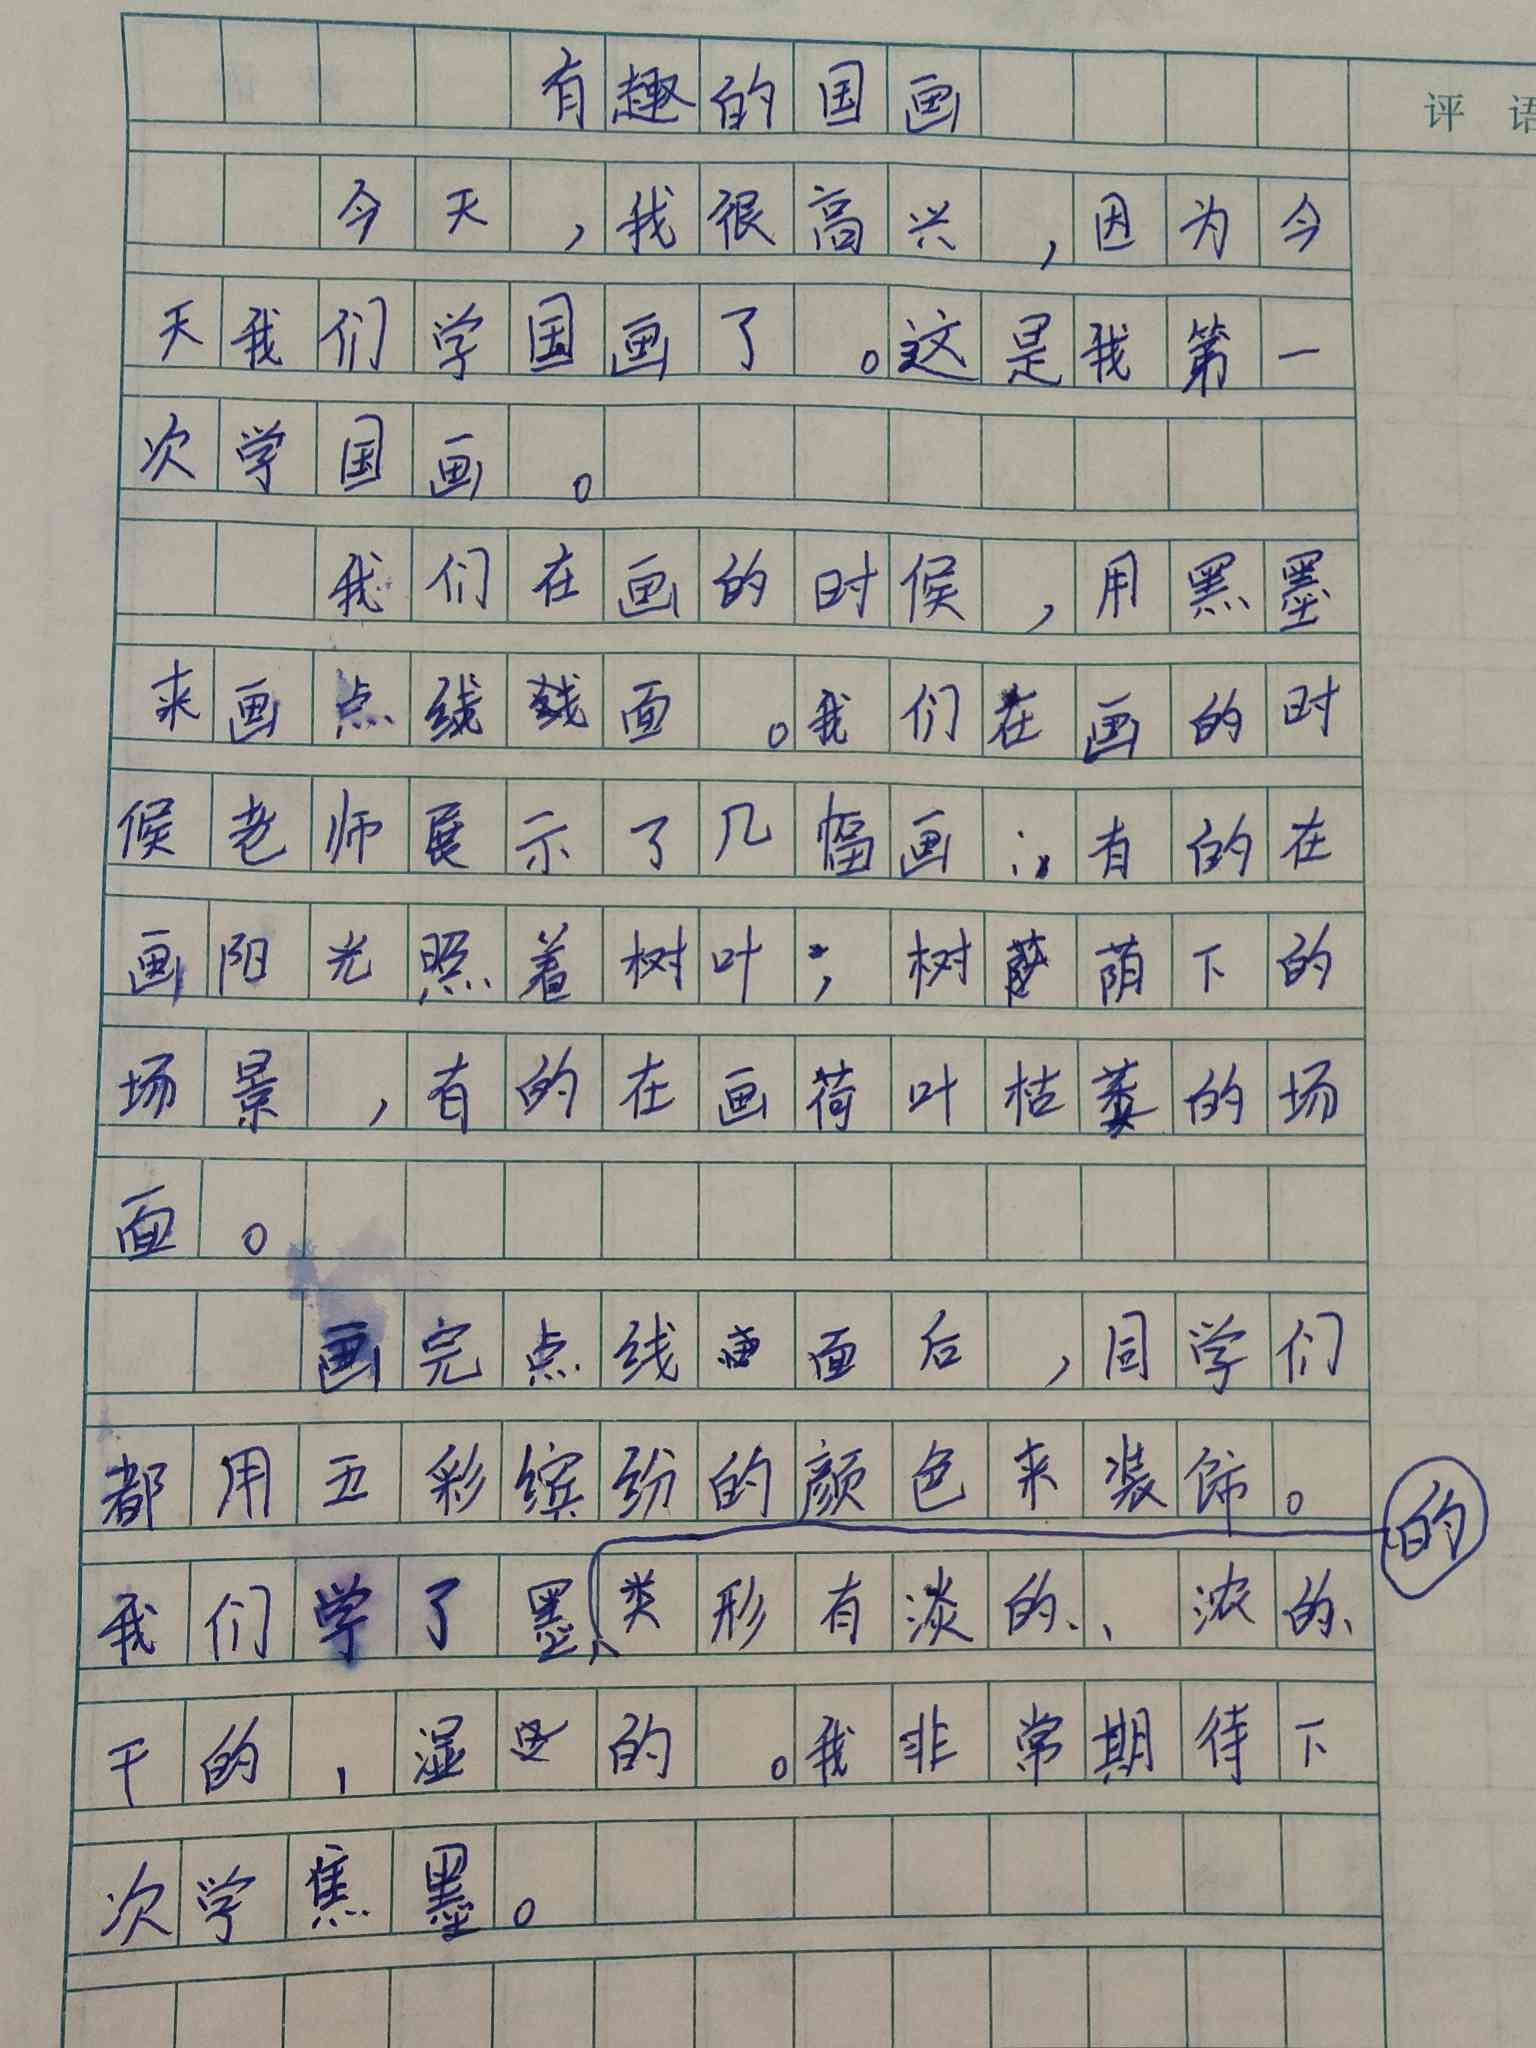 有趣的国画
评语
今天，我很高兴，因为今
天我们学国画了。这是我第一
次学国画。
我们在画的时候，用黑墨
来画点线面。我们在画的时
候老师展示了几幅画：有的在
画阳光照着树叶，树荫下的
场景，有的在画荷叶枯萎的场
面。
画完点线面后，同学们
都用五彩缤纷的颜色来装饰。
我们学了墨的类形有淡的、浓的、
干的，湿的。我非常期待下
次学焦墨。